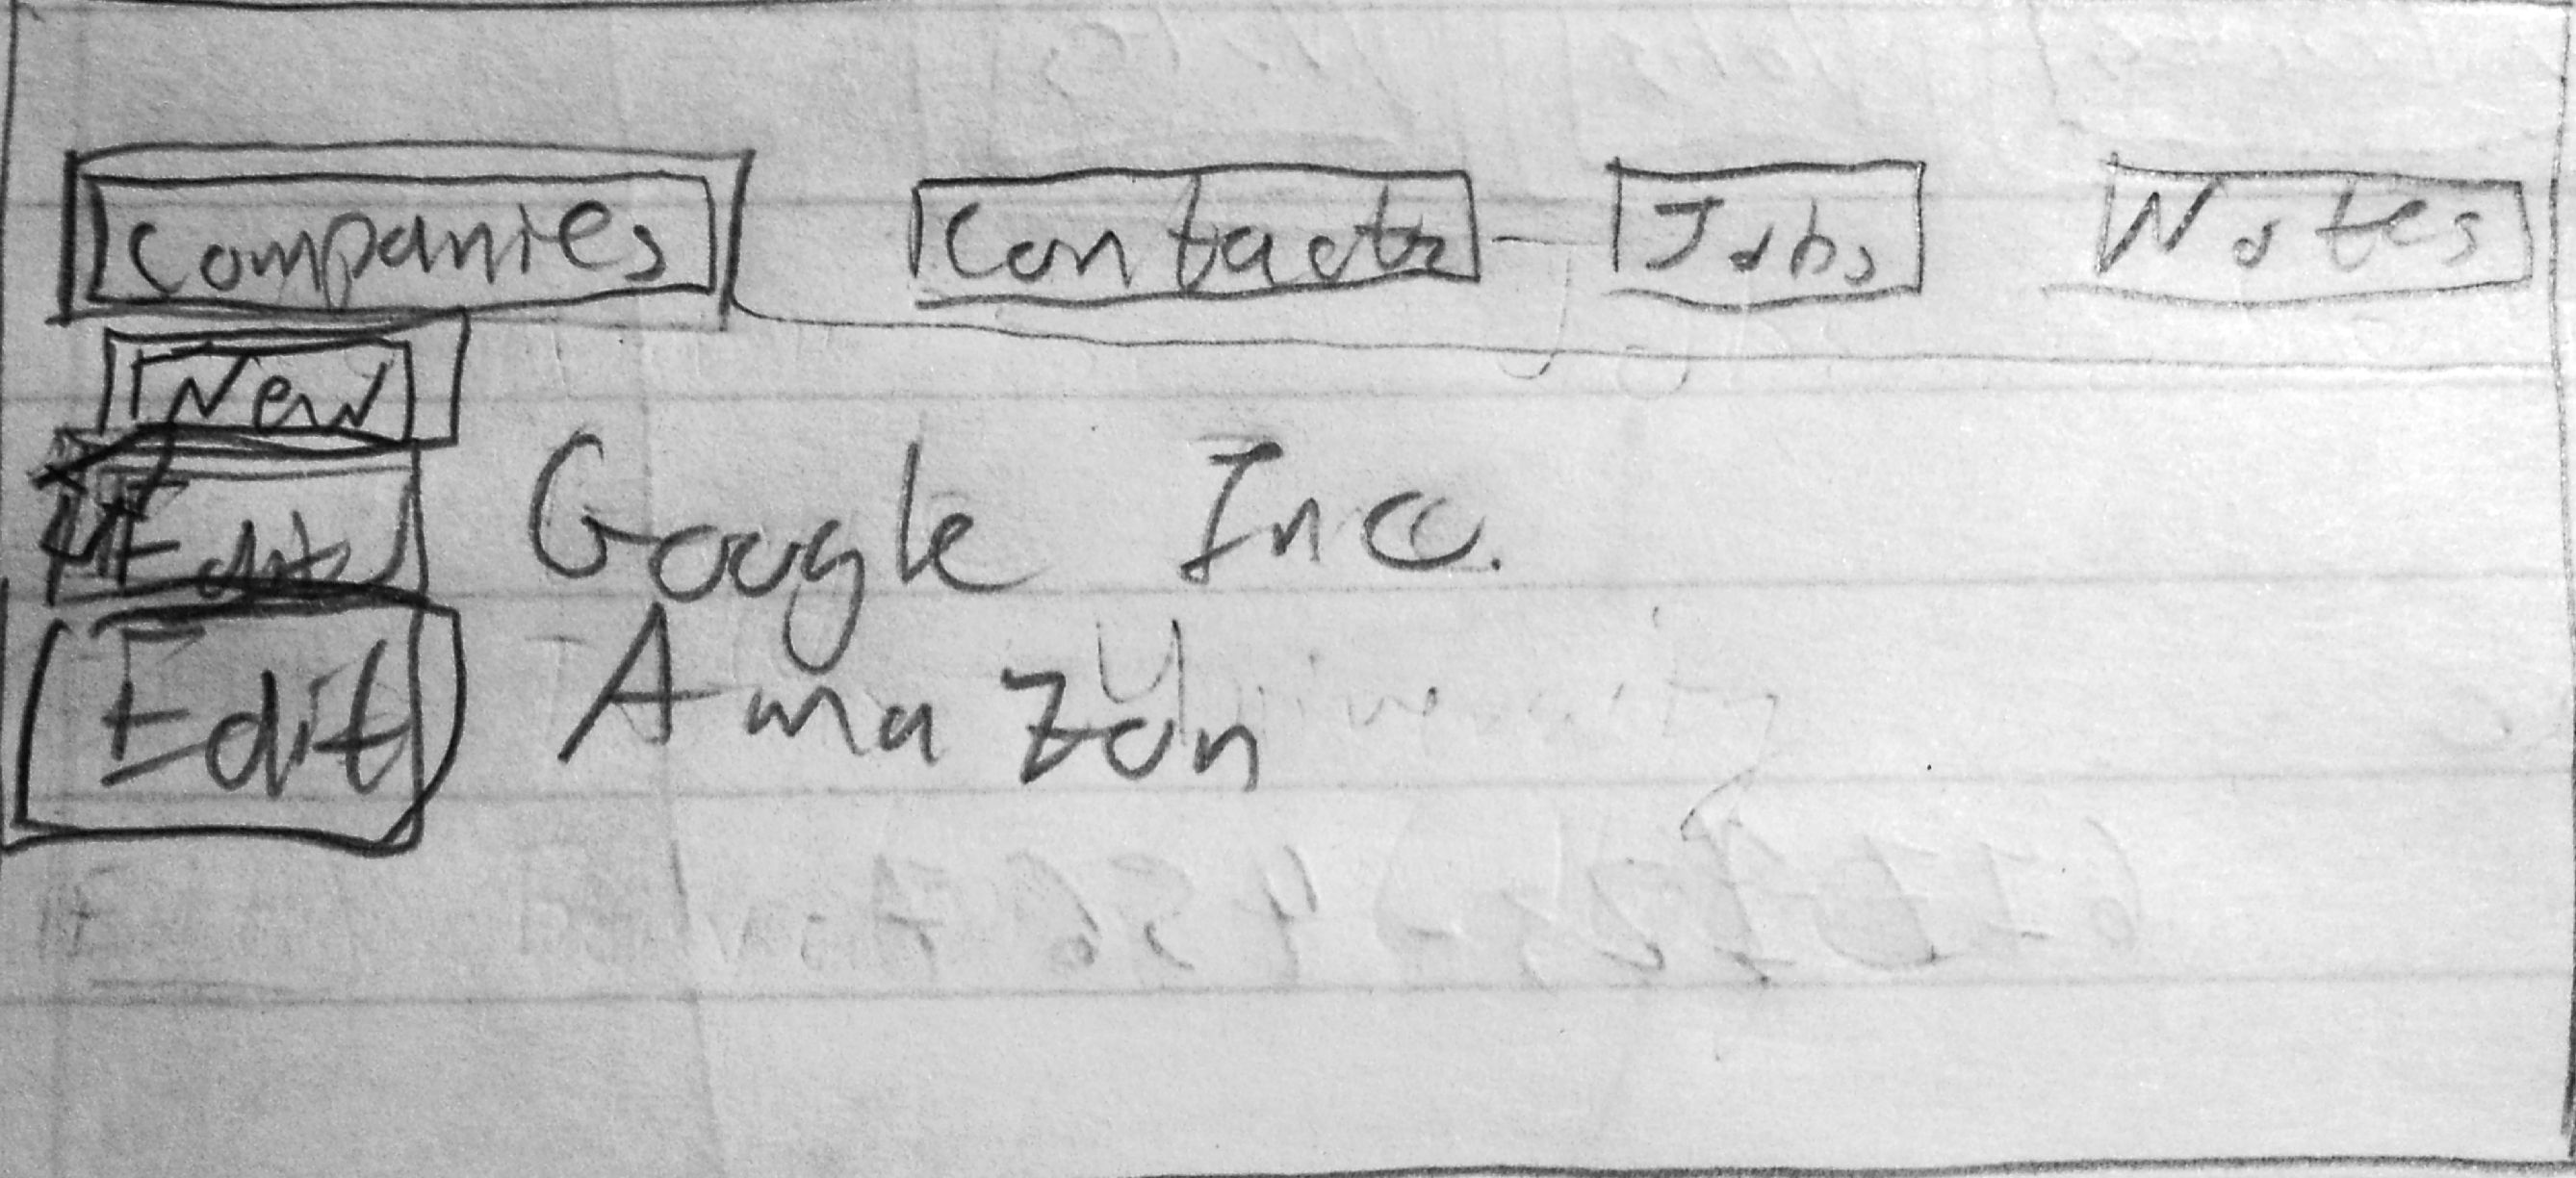 Companies Contacts Jobs Notes
New
Edit Google Inc.
Edit Amazon